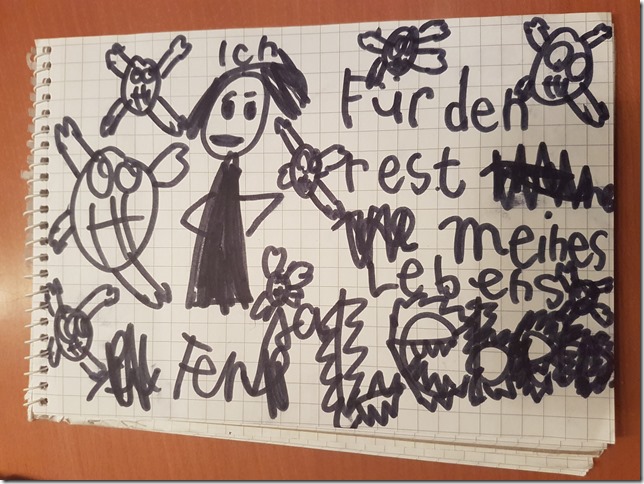 Ich
Für den
rest
meines
Lebens